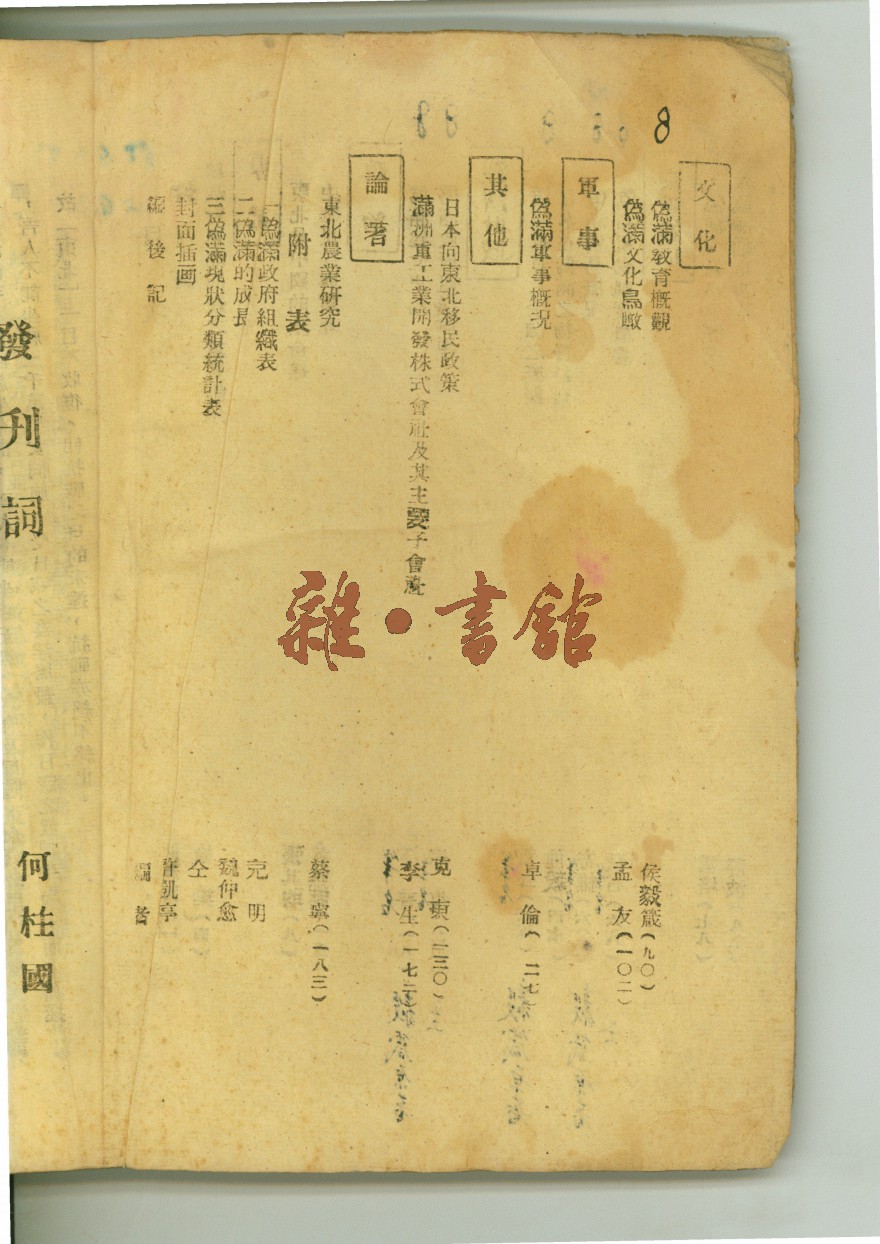 文化
偽滿教育概觀 侯毅箴(九〇)
偽滿文化鳥瞰 孟友(一〇二)
軍事
偽滿軍事概況 卓倫(一二七)
其他
日本向東北移民政策 克東(一三〇)
滿洲重工業開發株式會社及其主要子會社 李生(一七二)
論著
東北農業研究 蔡寧(一八三)
附表
一偽滿政府組織表 克明
二偽滿的成長 魏仲愈
三偽滿現狀分類統計表 仝
封面插画 許凱亭
編後記 編者
發刊詞
何桂國
雜·書館
8